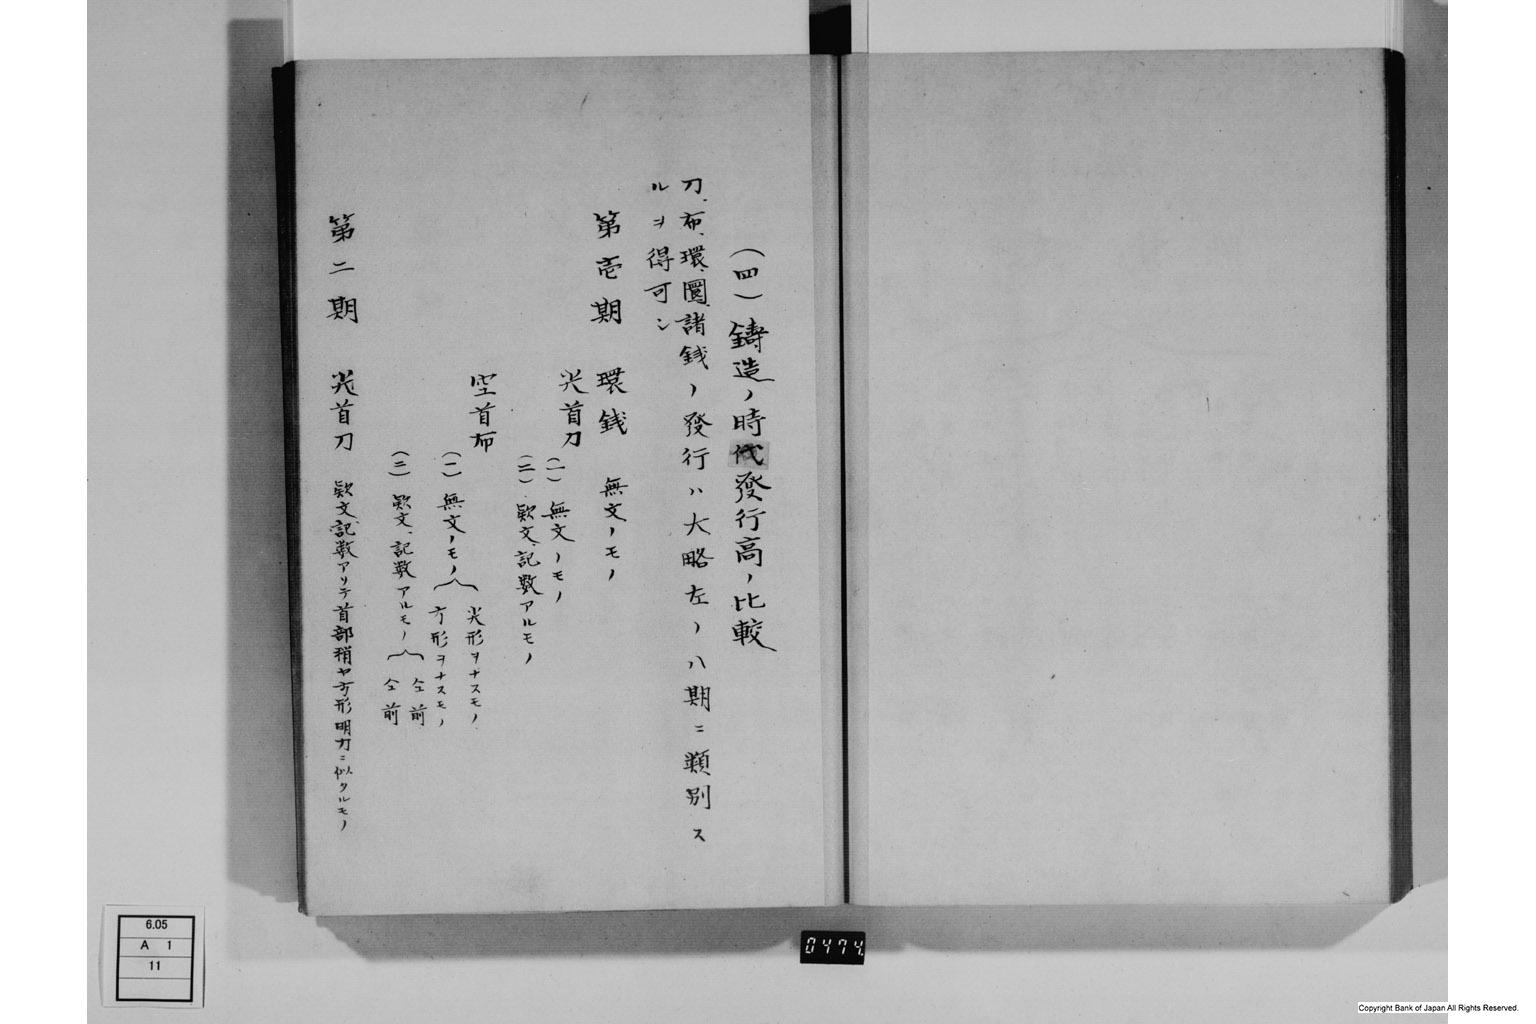 (四)鋳造ノ時代発行高ノ比較
刀、布、環、圜、諸銭ノ發行ハ大略左ノ八期ニ類別ス
ルヲ得可シ
第壱期 環銭 無文ノモノ
尖首刀 (一)無文ノモノ
(二)欵文、記数アルモノ
空首布
(一)無文ノモノ 尖形ヲナスモノ
方形ヲナスモノ
(二)欵文、記数アルモノ 仝前
仝前
第二期 尖首刀 欵文、記数アリテ首部稍ヤ方形明刀ニ似タルモノ
6.05
A 1
11
0474
Copyright Bank of Japan All Rights Reserved.